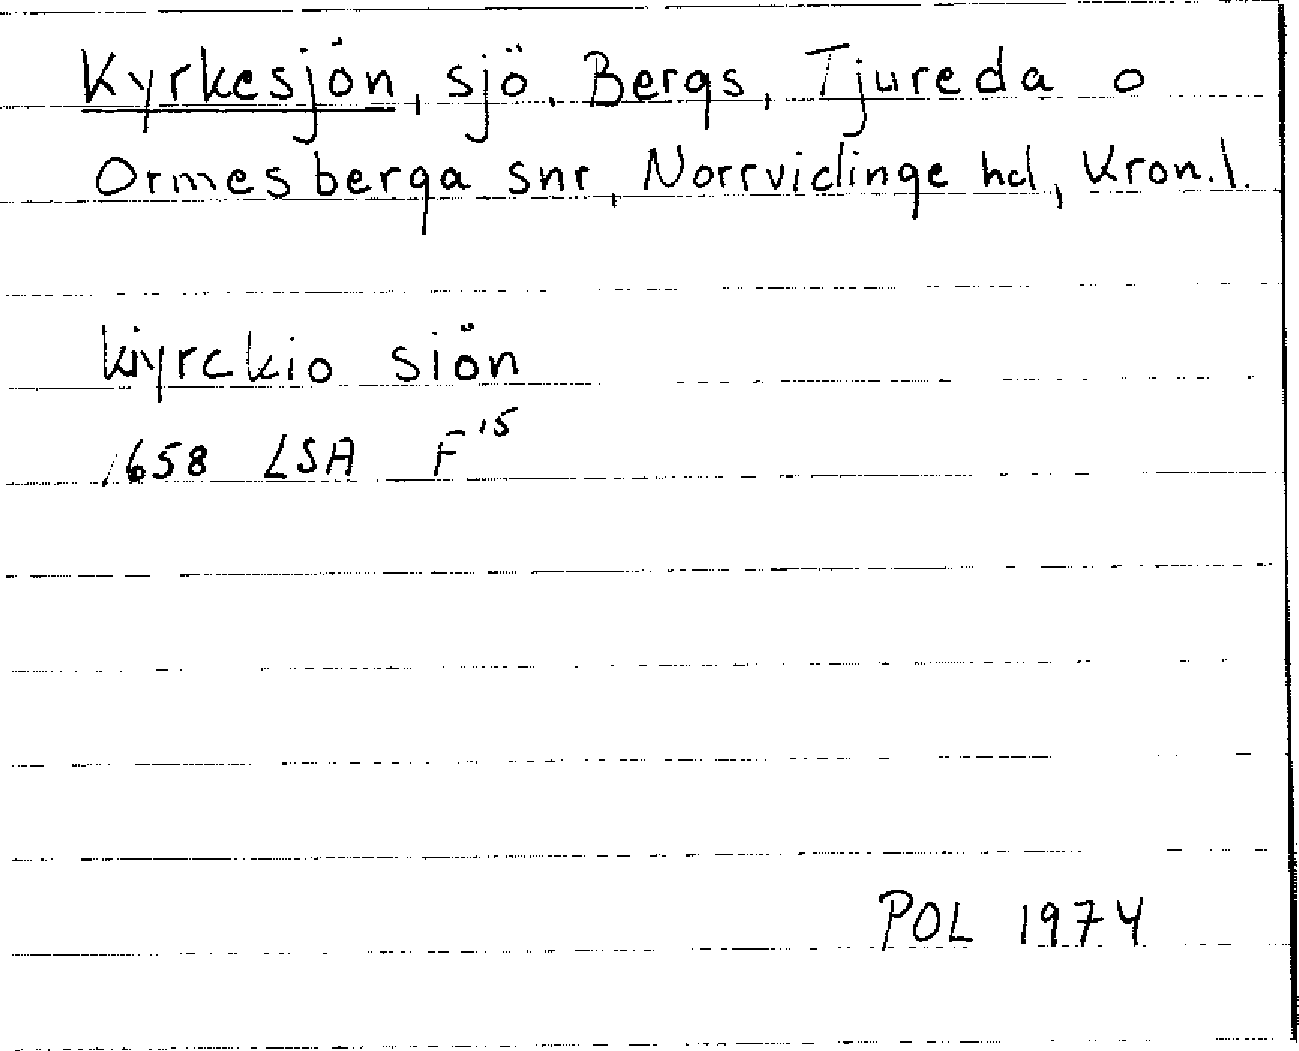 Kyrkesjön, sjö, Bergs, Tjureda o
Ormesberga snr, Norrvidinge hd, Kron.l.
kiyrckio siön
1658 LSA F 15
POL 1974